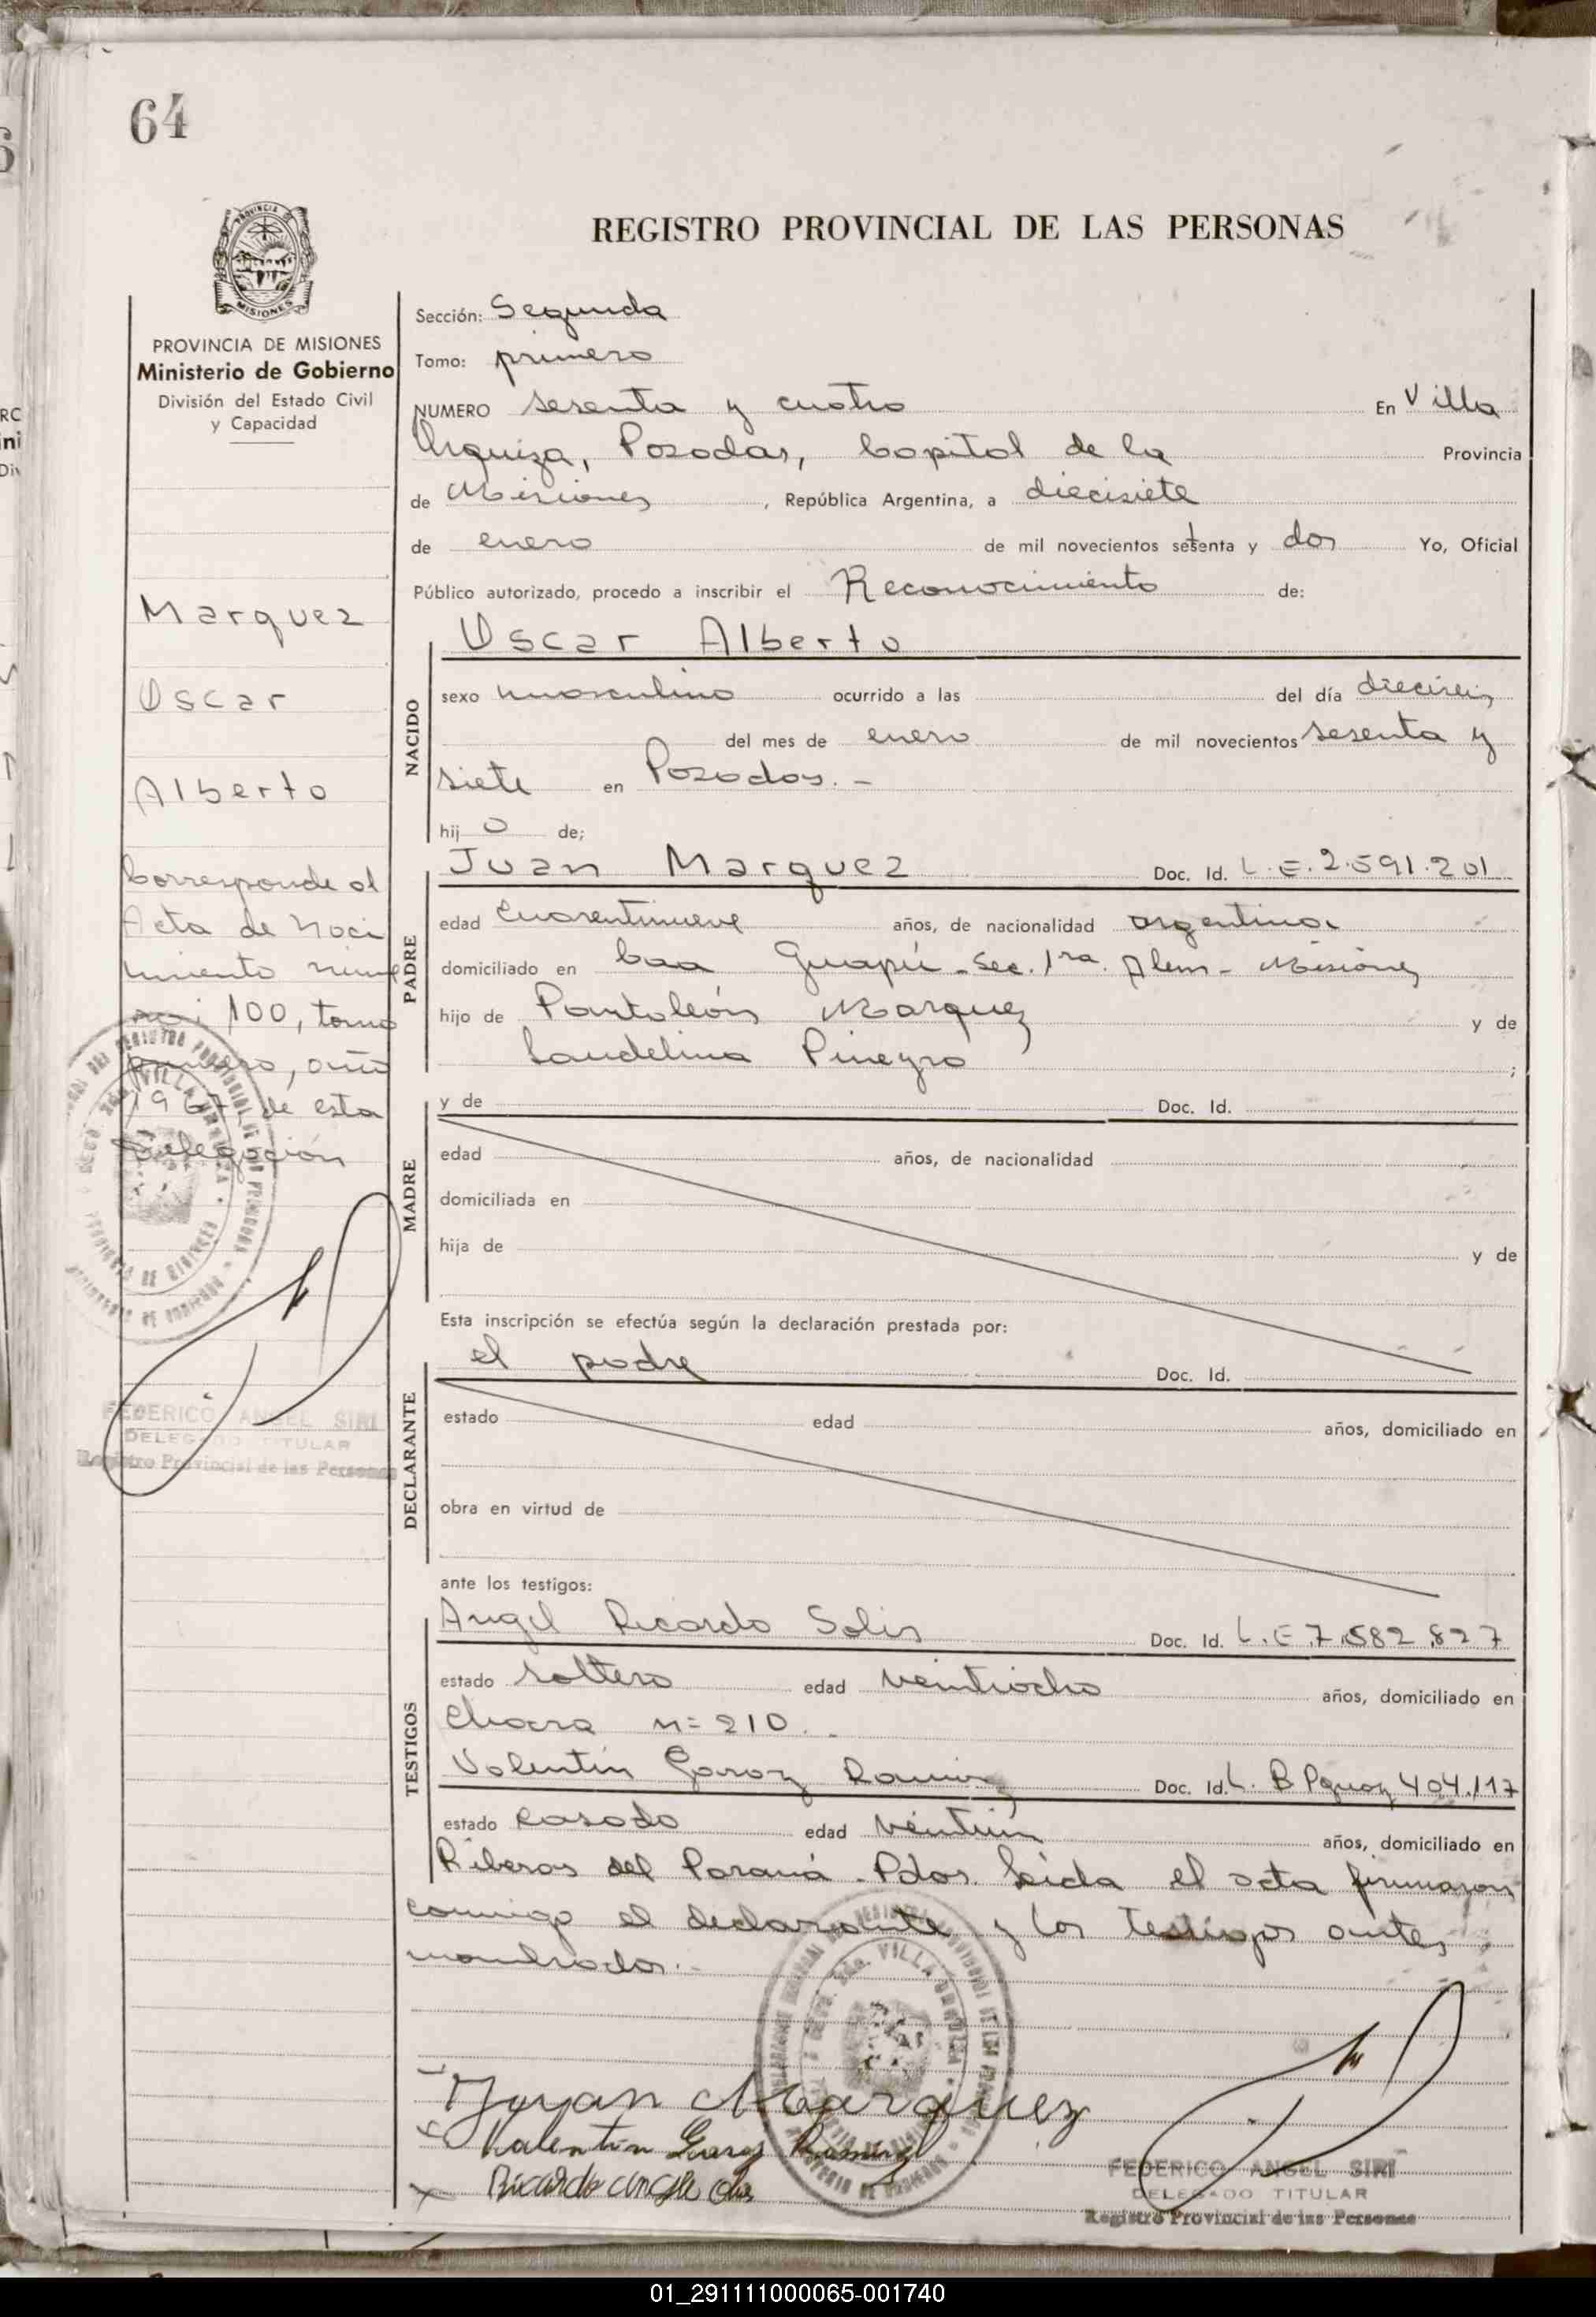 64
REGISTRO PROVINCIAL DE LAS PERSONAS
PROVINCIA DE MISIONES
Ministerio de Gobierno
División del Estado Civil
y Capacidad
Marquez
Oscar
Alberto
Corresponde al
Acta de naci
miento núme
100, tomo
primero, año
1967 de esta
Delegación
FEDERICO ANGEL SIRI
DELEGADO TITULAR
Registro Provincial de las Personas
Sección: Segunda
Tomo: primero
NUMERO sesenta y cuatro En Villa
Urquiza, Posadas, Capital de la Provincia
de Misiones, República Argentina, a diecisiete
de enero de mil novecientos setenta y dos Yo, Oficial
Público autorizado, procedo a inscribir el Reconocimiento de:
Oscar Alberto
NACIDO
sexo masculino ocurrido a las del día dieciseis
del mes de enero de mil novecientos sesenta y
siete en Posadas.-
hijo de;
Juan Marquez Doc. Id. L.E.2.591.201
PADRE
edad cuarentinueve años, de nacionalidad argentina
domiciliado en Caa Guapú-Sec.1ra. Alem-Misiones
hijo de Pantaleón Marquez y de
Laudelina Pineyro ;
MADRE
y de Doc. Id.
edad años, de nacionalidad
domiciliada en
hija de y de
Esta inscripción se efectúa según la declaración prestada por:
el padre Doc. Id.
DECLARANTE
estado edad años, domiciliado en
obra en virtud de
ante los testigos:
Angel Ricardo Solis Doc. Id. L.E.7.582.827
TESTIGOS
estado soltero edad veintiocho años, domiciliado en
Chacra n=210.-
Valentín Garay Ramirez Doc. Id. L. B Pguay 404.117
estado casado edad veintiún años, domiciliado en
Riberas del Paraná-Pdas. Leida el acta firmaron
conmigo el declarante y los testigos antes
nombrados.-
Juan Marquez
Valentin Garay Ramirez
Ricardo
FEDERICO ANGEL SIRI
DELEGADO TITULAR
Registro Provincial de las Personas
01_291111000065-001740